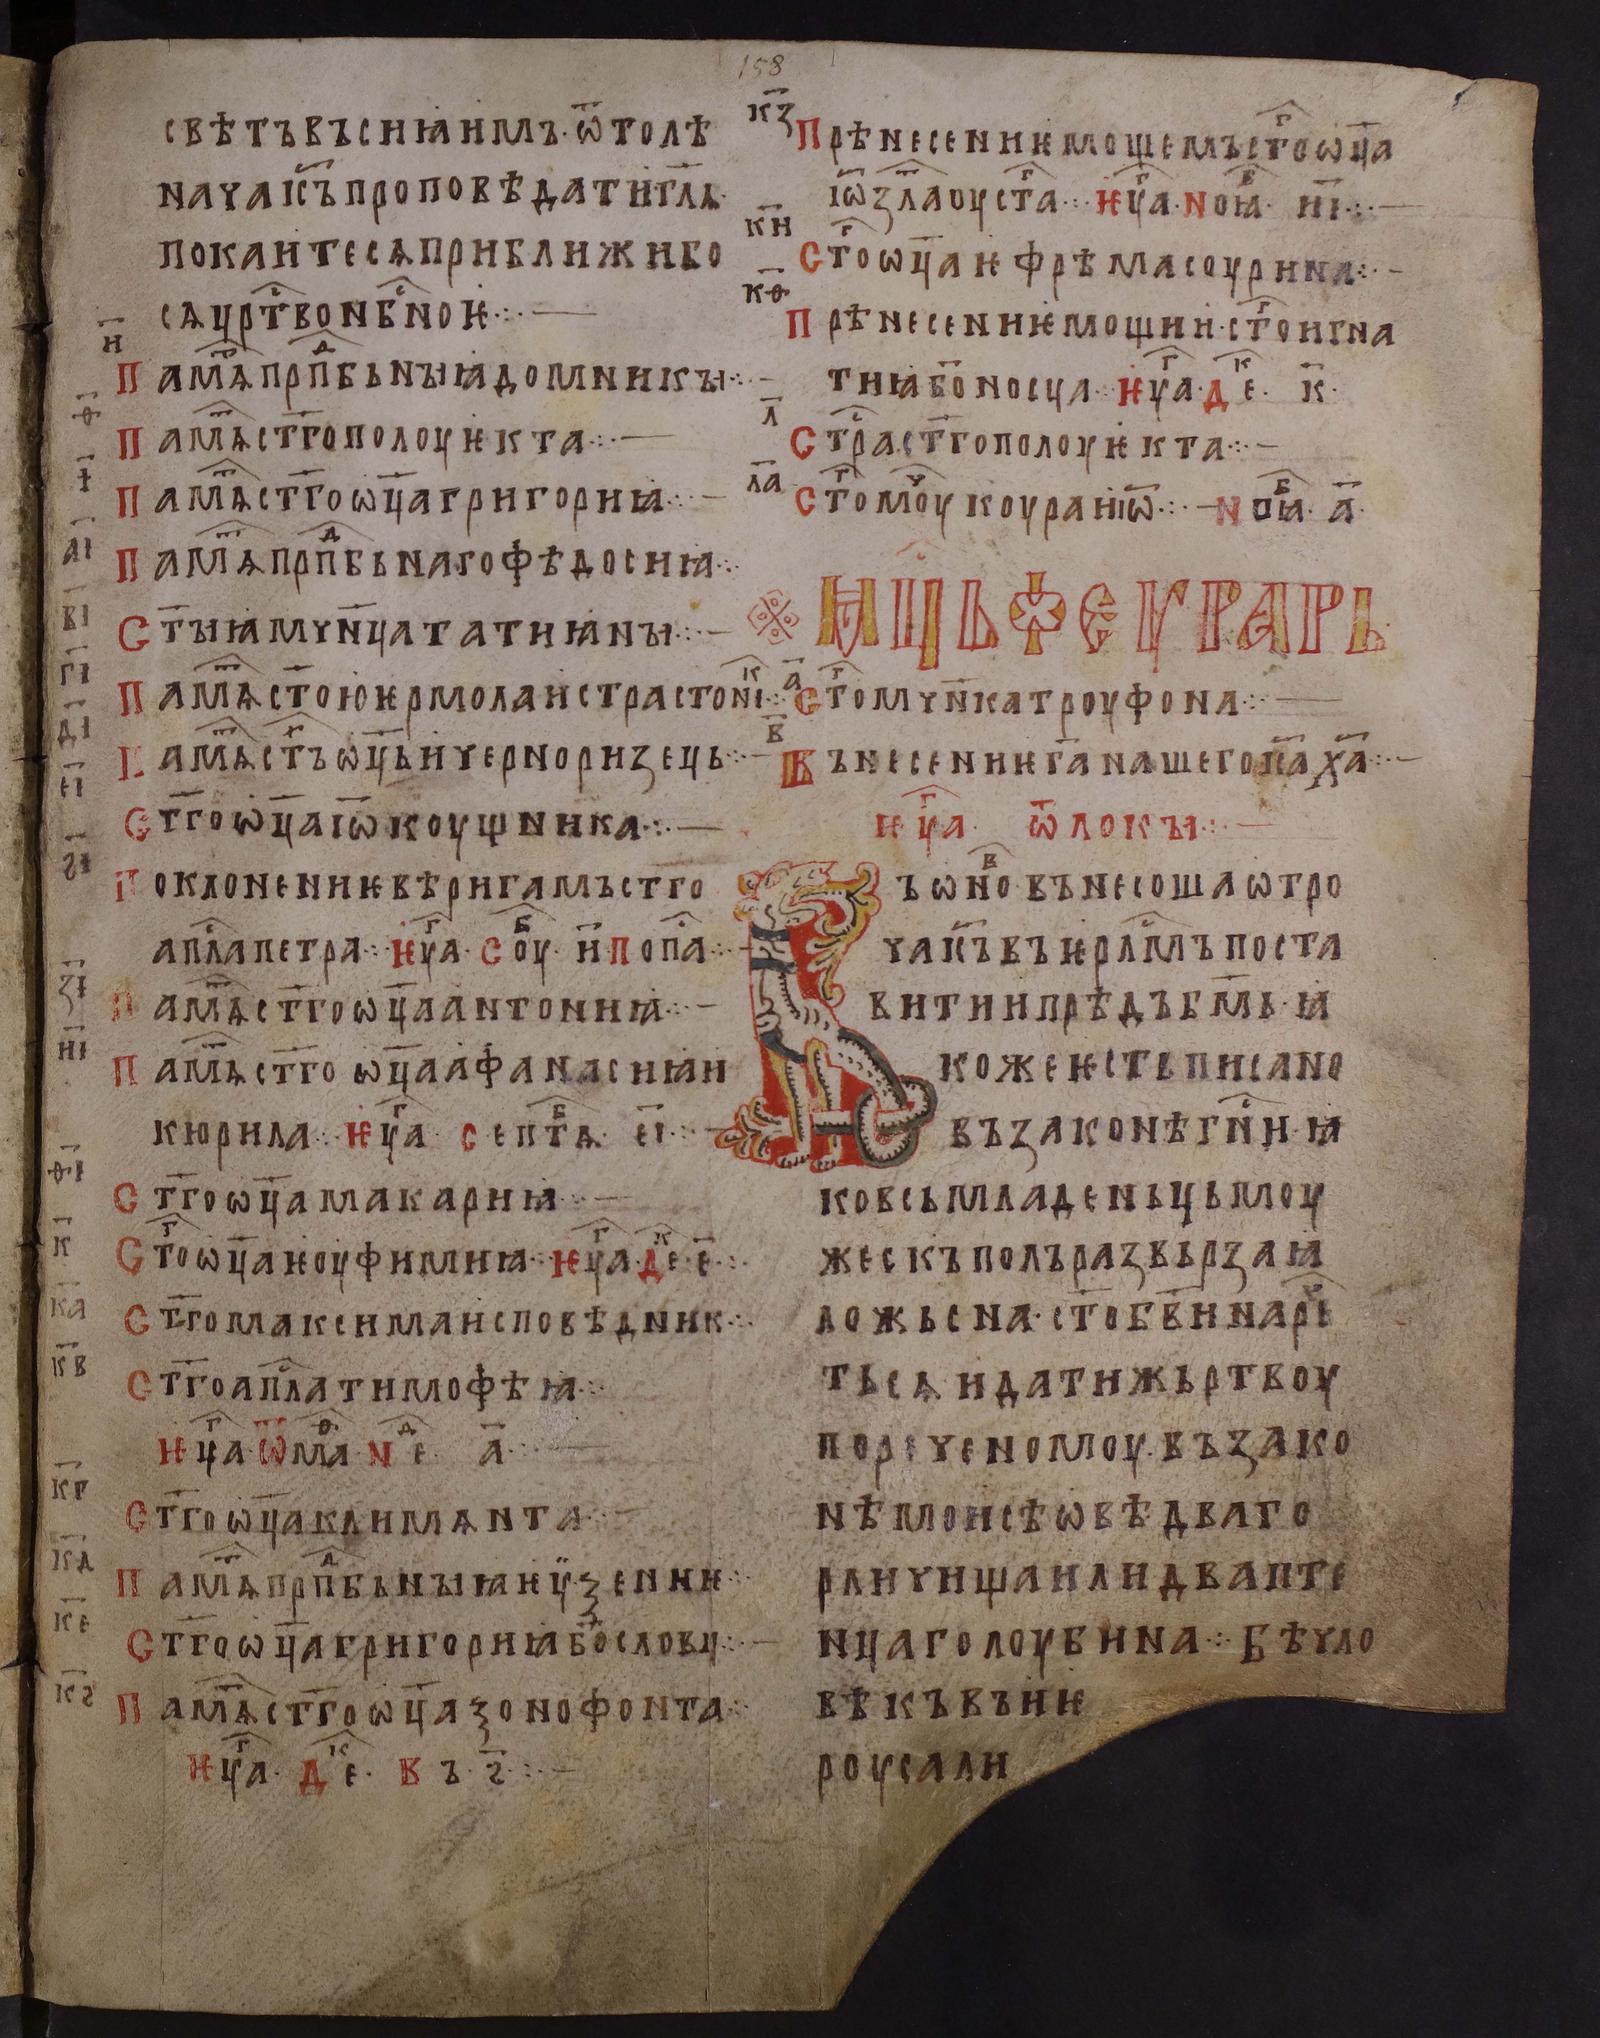 158
свѣтъвъсиꙗимъ·ѿтолѣ
начакъпроповѣдатигл҃ѧ·
покаитесѧприближибо
сѧцр҃твонб҃ноѥ⁘
и҃
памѧ҃прп҃бьныꙗдомникы⁘
ѳ҃
памѧ҃ст҃гополоуѥкта⁘
і҃
памѧ҃ст҃гоѡц҃агригориꙗ⁘
аі҃
памѧ҃прп҃бьнагофѣдосиꙗ⁘
ві҃
ст҃ыꙗмчн҃цататиꙗны⁘
гі҃
памѧ҃ст҃оюѥрмолаистрастоник҃⁘
ді҃
памѧ҃ст҃ъѡц҃ьичерноризець⁘
еі҃
ст҃гоѡц҃аіѡ҃коущника⁘
ѕі҃
поклонениѥвѣригамъстго
апл҃апетра⁘ѥуа҃·соу҃·и҃попа҃⁘
зі҃
памѧ҃ст҃гоѡц҃аантониꙗ⁘
иі҃
памѧ҃ст҃гоѡц҃аафанасиꙗи
кюрила⁘ѥуа҃ септѧ҃ еі҃⁘
ѳі҃
ст҃гоѡц҃амакариꙗ⁘
к҃
ст҃оѡц҃аѥоуфимиꙗ·ѥуа҃·де҃·е҃⁘
ка҃
ст҃гомаксимаисповѣдник⁘
кв҃
ст҃гоапл҃атимофѣꙗ⁘
ѥуа҃ѿма҃·не҃ а҃⁘
кг҃
ст҃гоѡц҃аклимѧнта⁘
кд҃
памѧ҃прп҃бьныꙗѥѯениѥ⁘
ке҃
ст҃гоѡц҃агригориꙗбо҃словц⁘
кѕ҃
памѧ҃ст҃гоѡц҃аѯонофонта⁘
ѥуа҃·де҃·въ·ѕ҃⁘
кз҃
прѣнесениѥмощемъст҃оѡц҃а
іѡ҃злаоуста҃⁘ѥуа҃·ноꙗ҃ иі҃⁘
ки҃
ст҃оѡц҃аѥфрѣмасоурина⁘
кѳ҃
прѣнесениѥмощии·ст҃оигна
тиꙗбо҃носца ѥуа҃·де҃ к҃·
л҃
стра҃ст҃гополоуѥкта⁘
ла҃
ст҃омоу҃коураниѿ⁘ноꙗ҃ а҃·
мц҃ьфеураръ
а҃
ст҃омчн҃катроуфона⁘
в҃
вънесениѥга҃нашегоіса҃ха҃⁘
ѥуа҃ ѿлокы⁘
ъѡно҃вънесошаѡтро
чакъвъѥрлм҃ъпоста
витиипрѣдъбм҃ь·ꙗ
кожеѥстьписано
възаконѣгн҃и·ꙗ
ковсьмладеньцьмоу
жескъполъразвьрзаꙗ
ложьсна·ст҃обви҃нарь
тьсѧидатижьртвоу
пореченомоу·възако
нѣмоисѣѡвѣ·дваго
рличищаилидвапте
нцаголоубина⁘бѣчло
вѣкъвъиѥ
роусали